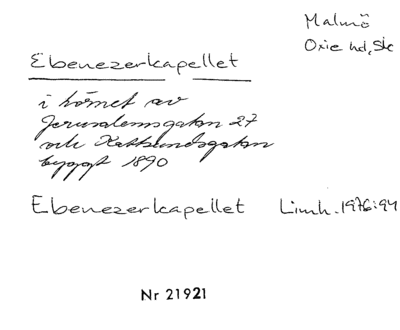 Malmö
Oxie hd, Sk
Ebenezerkapellet
i hörnet av
Jerusalemsgatan 27
och Kattsundsgatan
byggt 1890
Ebenezerkapellet Limh. 1976:94
Nr 21921